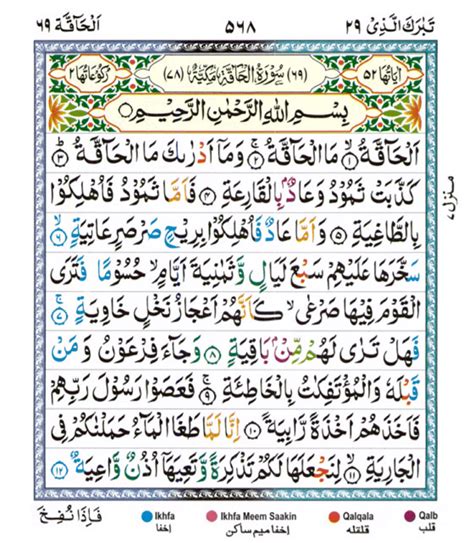 تَبٰرَكَ الَّذِیْ ۲۹ ۵۶۸ اَلْحَآقَّة ۶۹
اٰیَاتُهَا ۵۲ (۶۹) سُوْرَةُ الْحَآقَّةِ مَكِّیَّةٌ (۷۸) رُكُوْعَاتُهَا ۲
بِسْمِ اللهِ الرَّحْمٰنِ الرَّحِیْمِ
اَلْحَآقَّةُ ۱ مَا الْحَآقَّةُ ۲ وَمَاۤ اَدْرٰىكَ مَا الْحَآقَّةُ ۳
كَذَّبَتْ ثَمُوْدُ وَعَادٌۢ بِالْقَارِعَةِ ۴ فَاَمَّا ثَمُوْدُ فَاُهْلِكُوْا
بِالطَّاغِیَةِ ۵ وَاَمَّا عَادٌ فَاُهْلِكُوْا بِرِیْحٍ صَرْصَرٍ عَاتِیَةٍ ۶
سَخَّرَهَا عَلَیْهِمْ سَبْعَ لَیَالٍ وَّثَمٰنِیَةَ اَیَّامٍ حُسُوْمًا فَتَرَی
الْقَوْمَ فِیْهَا صَرْعٰی كَاَنَّهُمْ اَعْجَازُ نَخْلٍ خَاوِیَةٍ ۷
فَهَلْ تَرٰی لَهُمْ مِّنْۢ بَاقِیَةٍ ۸ وَجَآءَ فِرْعَوْنُ وَمَنْ
قَبْلَهٗ وَالْمُؤْتَفِكٰتُ بِالْخَاطِئَةِ ۹ فَعَصَوْا رَسُوْلَ رَبِّهِمْ
فَاَخَذَهُمْ اَخْذَةً رَّابِیَةً ۱۰ اِنَّا لَمَّا طَغَا الْمَآءُ حَمَلْنٰكُمْ فِی
الْجَارِیَةِ ۱۱ لِنَجْعَلَهَا لَكُمْ تَذْكِرَةً وَّتَعِیَهَاۤ اُذُنٌ وَّاعِیَةٌ ۱۲
منزل۷
فَاِذَا نُفِخَ
Ikhfa Ikhfa Meem Saakin Qalqala Qalb
اخفا اخفا میم ساکن قلقله قلب